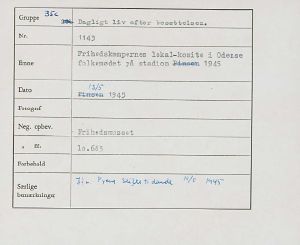 Gruppe 35c Dagligt liv efter besættelsen.
Nr. 1145
Emne Frihedskæmpernes lokal-komite i Odense
folkemødet på stadion Pinsen 1945
Dato 13/5 Pinsen 1945
Fotograf
Neg. opbev. Frihedsmuseet
" nr. 10.665
Forbehold
Særlige bemærkninger Fyens Stiftstidende 1945